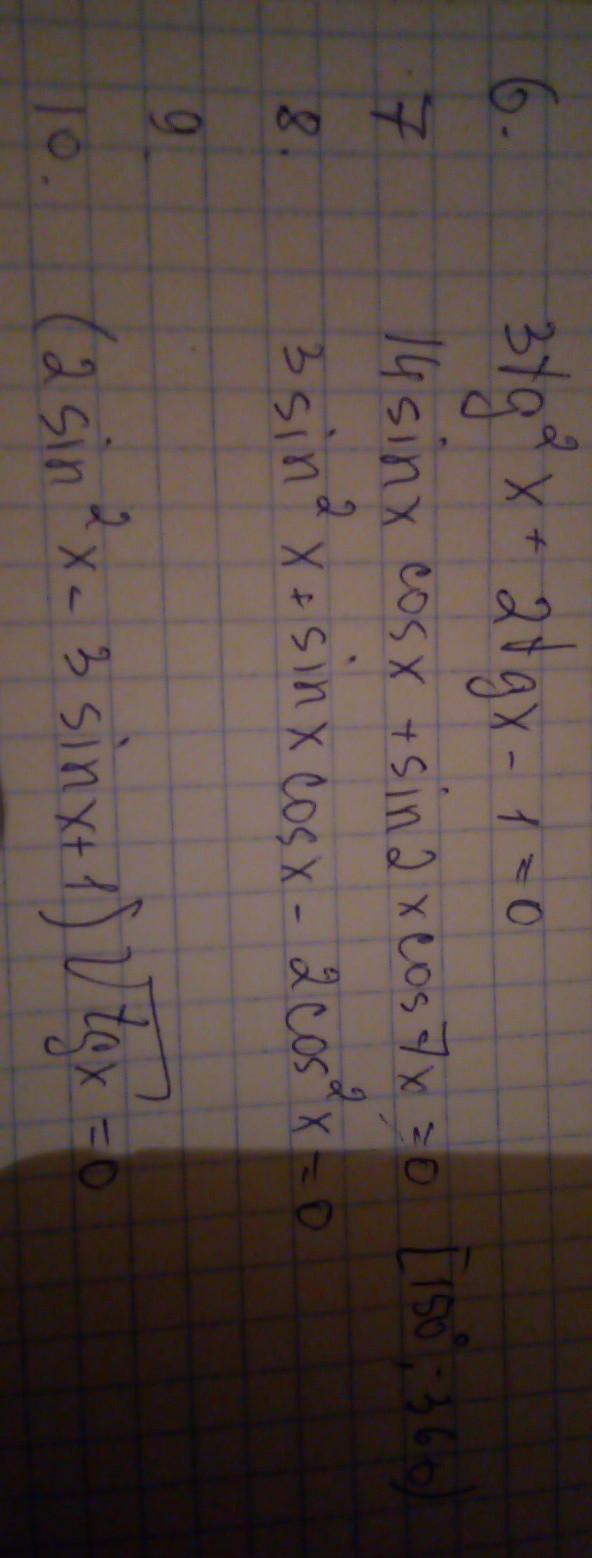 6. 3tg²x + 2tgx - 1 = 0
7 14 sinx cosx + sin2xcos7x = 0 [180°; 360)
8. 3sin²x + sinx cosx - 2cos²x = 0
9.
10. (2sin²x - 3sinx+1)√tgx = 0